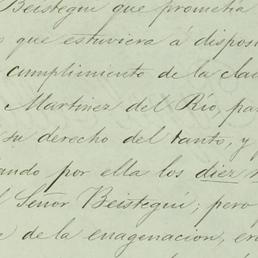 Beistegui que prometia
que estuviera á disposi
cumplimiento de la clau
Martinez del Rio, pa
su derecho del tanto, y
ando por ella los diez
Señor Beistegui; pero
de la enagenacion, er